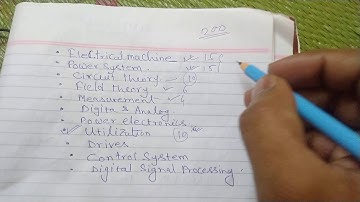 200
• Electrical machine 15
• Power System 15
• Circuit theory (10)
• Field theory 6
• Measurement 4
• Digital & Analog
• Power electronics
• Utilization (10)
• Drives
• Control System
• Digital Signal Processing.